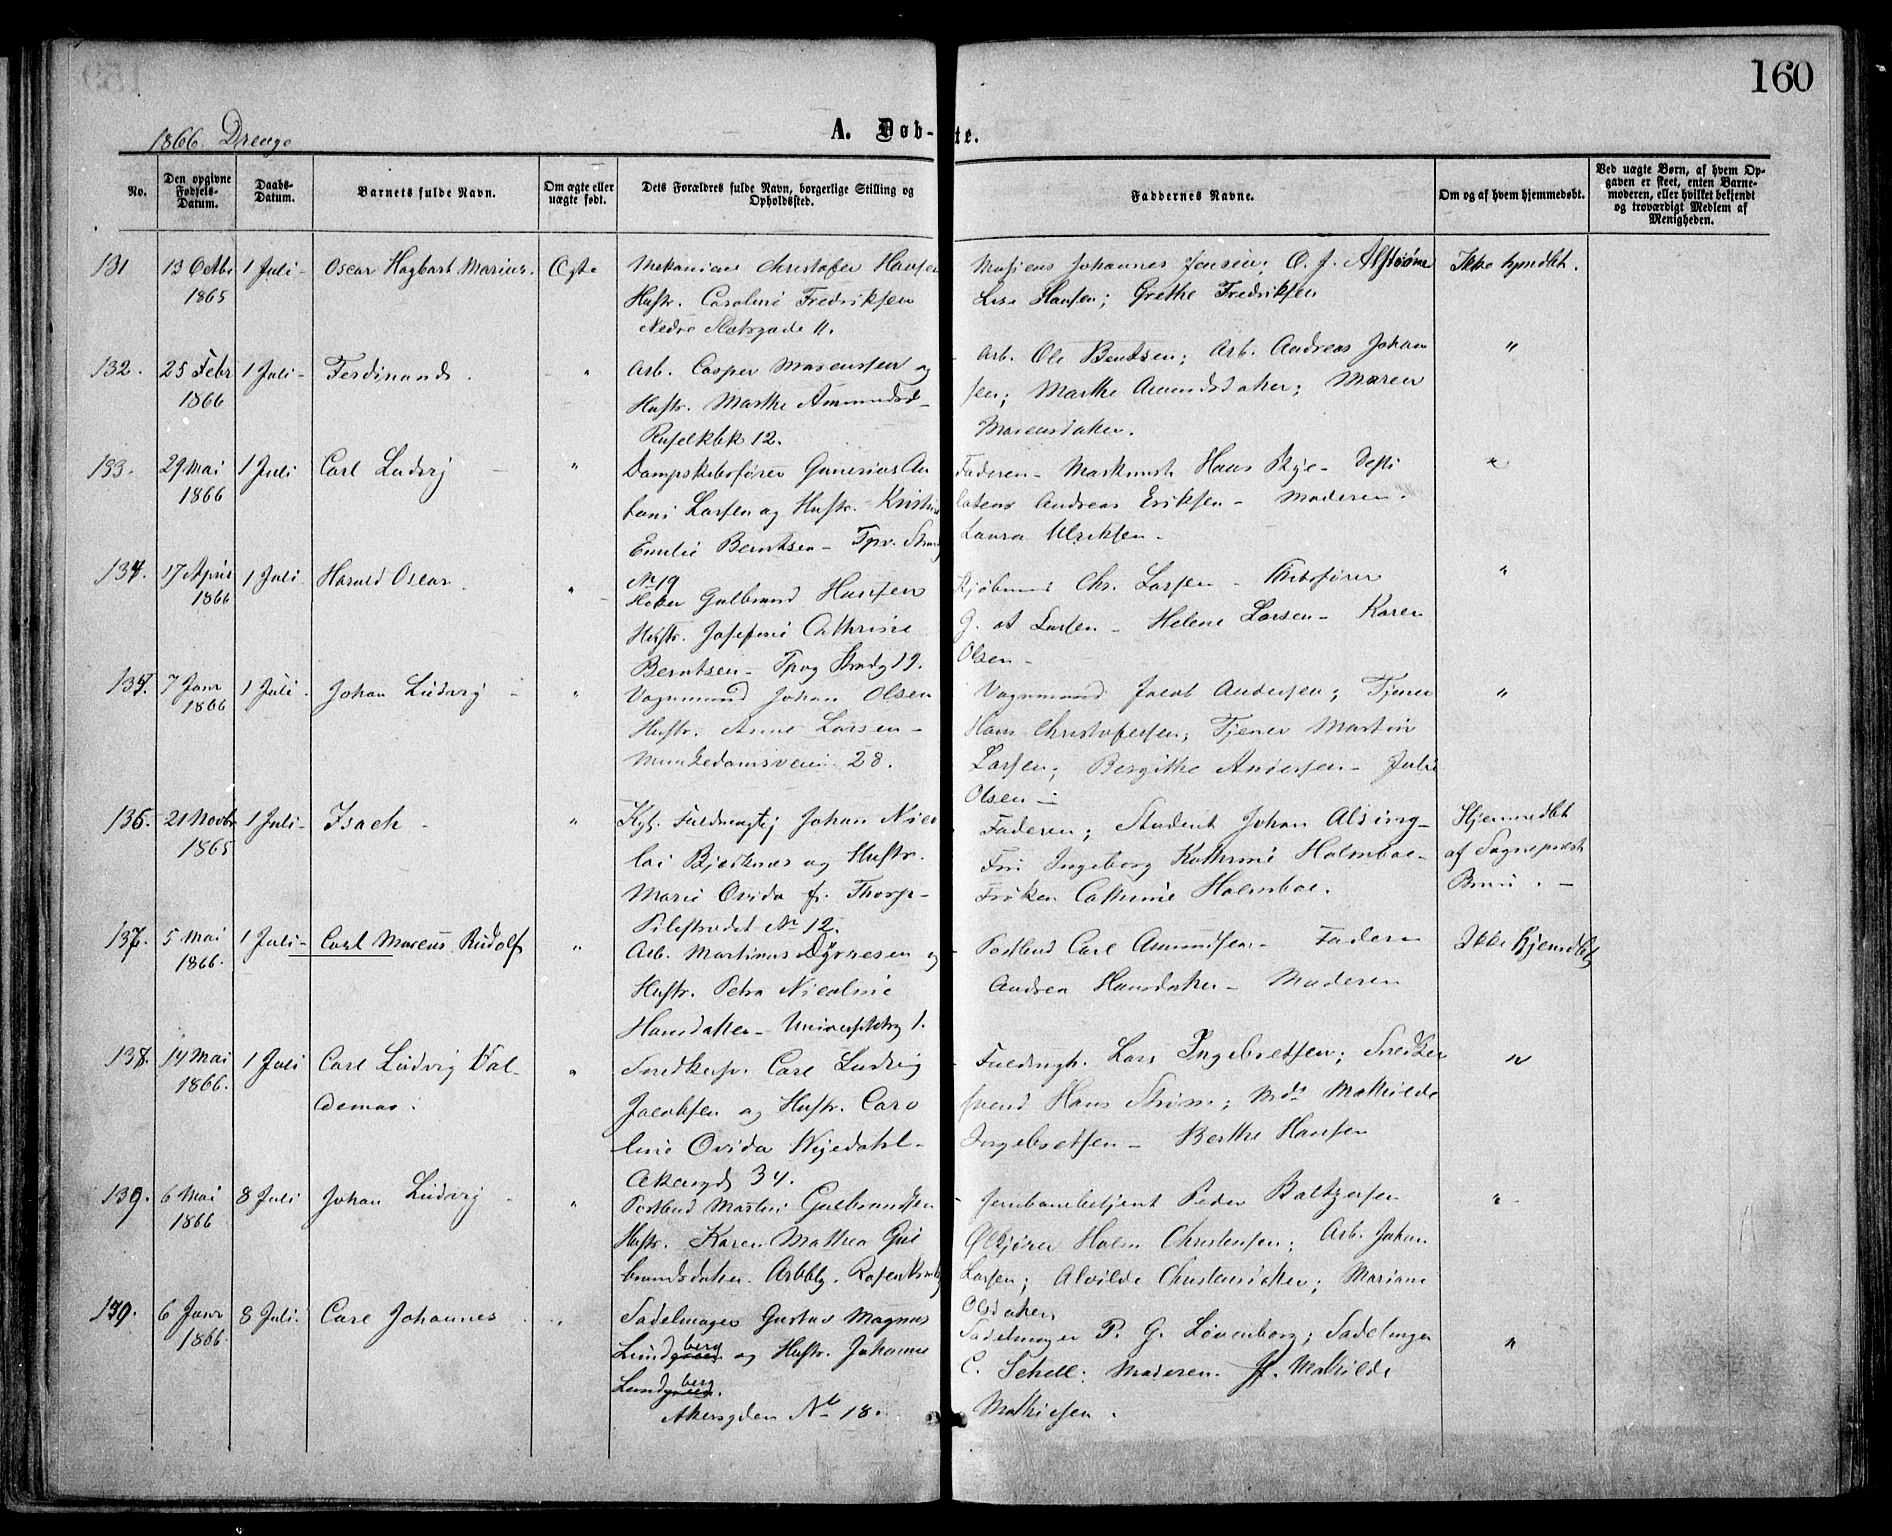 160
1866 Drenge
A. Døb-te.
No.
Den opgivne Fødsels-Datum.
Daabs-Datum.
Barnets fulde Navn.
Om ægte eller uægte født.
Dets Forældres fulde Navn, borgerlige Stilling og Opholdssted.
Faddernes Navne.
Om og af hvem hjemmedøbt.
Ved uægte Børn, af hvem Opgaven er skeet, enten Barnemoderen, eller hvilket bekjendt og troværdigt Medlem af Menigheden.
131 13 Octbr 1 Juli - Oscar Hagbart Marius. Ægte Mekanicus Christofer Hansen Johannes Jensen; O. J. Alstrøm Ikke hjmdbt.
1865 Hustr. Caroline Fredriksen Lise Hansen; Grethe Fredriksen
Nedre Slotsgade 11.
132. 25 Febr 1 Juli - Ferdinand. " Arb. Casper Marenssen og Arb. Ole Berntsen; Arb. Andreas Johan "
1866 Hustr. Marthe Amundsd - sen; Marthe Amundsdater; Maren
Ruselkbk 12. Marensdater.
133. 29 Mai 1 Juli Carl Ludvig " Dampskibsfører Gunerius An Faderen - Maskinist Hans Rye - "
1866 toni Larsen og Hustr. Kristine Andreas Eriksen - Moderen.
Emilie Berntsen - Tpv. Strandg Laura Ulriksen -
134. 17 April 1 Juli Harald Oscar " No 19
1866 Gulbrand Hansen Kjøbmand Chr. Larsen - Skibsfører "
Hustr. Josefine Cathrine G. A Larsen - Helene Larsen - Karen
Berntsen - Tpvg Strandg 19. Olsen -
135. 7 Janr 1 Juli. Johan Ludvig - " Vognmand Johan Olsen Vognmand Jacob Andersen; Tjener "
1866 Hustr. Anne Larsen - Hans Christofersen; Tjener Martin
Munkedamsveien 28. Larsen; Bergithe Andersen - Julie
Olsen -
136. 21 Novbr 1 Juli - Isach - " Kgl. Fuldmægtig Johan Nico Faderen; Student Johan Alsing - Hjemmedbt
1865 lai Bjerknes og Hustr. Fru Ingeborg Kathrine Holmboe - af Sognepræst
Marie Ovida f. Thorp - Frøken Cathrine Holmboe. Bruun. -
Pilestrædet No 12.
137. 5 Mai 1 Juli - Carl Marcus Rudolf " Arb. Martinus Dyrresen og - Postbud Carl Amundsen - Faderen Ikke Hjemdbt
1866. Hustr. Petra Nicoline Andrea Hansdater - Moderen
Hansdatter - Universitetsg 1.
138. 14 Mai 1 Juli Carl Ludvig Val- " Snedkersv. Carl Ludvig - Fuldmgt. Lars Ingebretsen; Snedker "
1866. demar. Jacobsen og Hustr. Caro svend Hans Strøm; Md. Mathilde
line Ovida Nyedahl - Ingebretsen - Berthe Hansen
Akersgd 34.
139. 6 Mai 8 Juli Johan Ludvig - " Postbud Martin Gulbrandsen - Jernbanebetjent Peder Baltzersen " -
1866 Hustr. Karen Mathea Gul Holm Christensen; Arb. Johan
brandsdater. Arbblg. Larsen; Alvilde Christensdater; Mariane
Olsdater
139. 6 Janr 8 Juli. Carl Johannes. " Sadelmager Gustav Magnus Sadelmager P. G. Løvenborg; Sadelmager "
1866. Lundgreen berg og Hustr. Johanne C. Schell; Moderen. Jf. Mathilde
Lundgreen berg. Mathiesen.
Akersgden No 18.